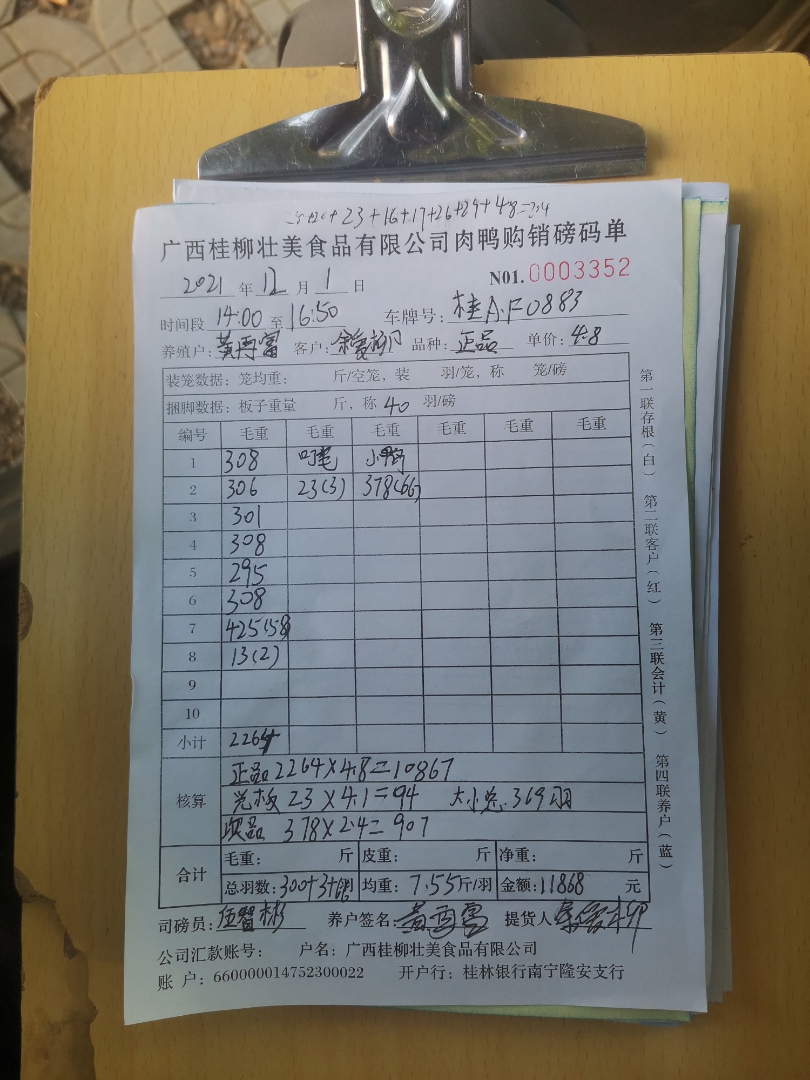 23+16+17+26+29+48=234
广西桂柳壮美食品有限公司肉鸭购销磅码单
2021年12月1日 N01.0003352
时间段14:00至16:50 车牌号:桂A·F0883
养殖户:黄再富 客户: 品种:正品 单价:4.8
装笼数据:笼均重: 斤/空笼,装 羽/笼,称 笼/磅
捆脚数据:板子重量 斤,称40羽/磅
编号 毛重 毛重 毛重 毛重 毛重 毛重
1 308
2 306 23(3) 378(66)
3 301
4 308
5 295
6 308
7 425(58)
8 13(2)
9
10
小计 2264
核算
正品2264×4.8=10867
23×4.1=94 大小总369羽
次品 378×2.4=907
合计
毛重: 斤 皮重: 斤 净重: 斤
总羽数:300+3+66 均重:7.55斤/羽 金额:11868元
司磅员: 养户签名:黄再富 提货人
公司汇款账号: 户名:广西桂柳壮美食品有限公司
账 户:660000014752300022 开户行:桂林银行南宁隆安支行
第一联存根(白) 第二联客户(红) 第三联会计(黄) 第四联养户(蓝)